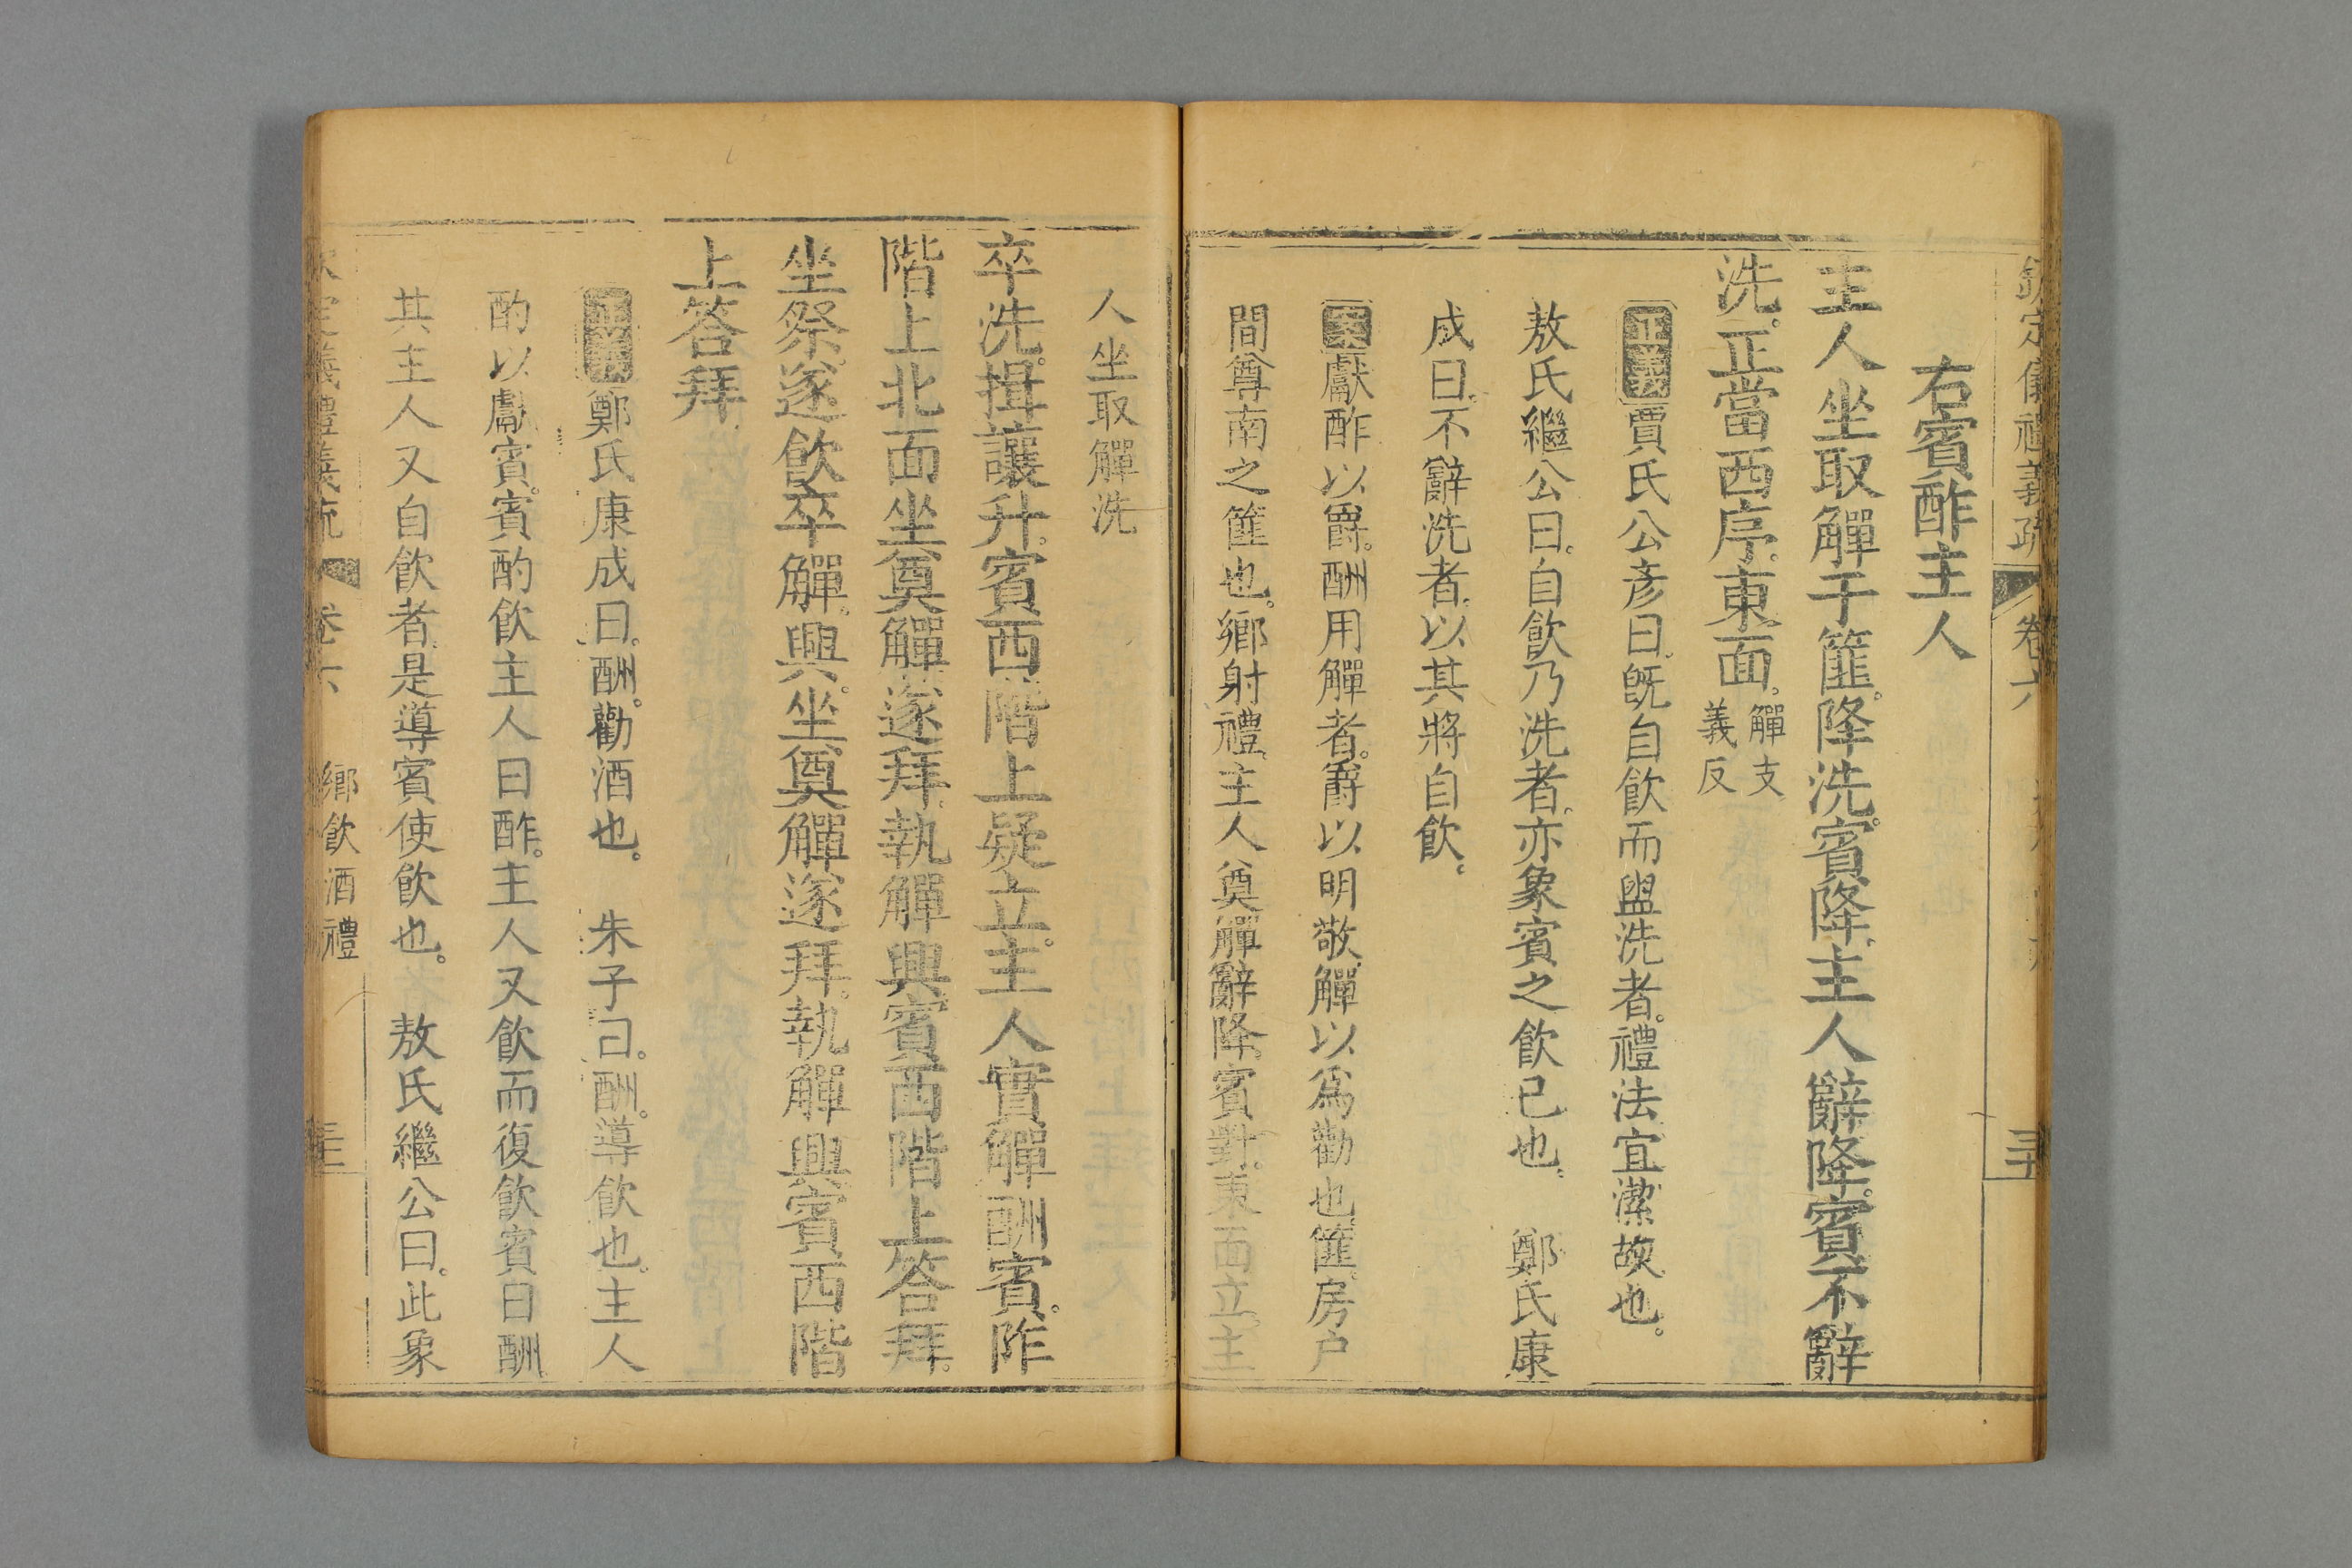 欽定儀禮義疏 卷六
右賓酢主人
主人坐取觶于篚。降洗。賓降。主人辭降。賓不辭
洗。正當西序。東面。觶支義反
正義賈氏公彥曰。旣自飲而盥洗者。禮法宜潔故也。
敖氏繼公曰。自飲乃洗者。亦象賓之飲已也。 鄭氏康
成曰。不辭洗者。以其將自飲。
獻酢以爵。酬用觶者。爵以明敬。觶以爲勸也。篚。房户
間尊南之篚也。鄉射禮。主人奠觶辭降。賓對。東面立。主
人坐取觶洗
卒洗。揖讓升。賓西階上疑立。主人實觶酬賓。阼
階上北面坐奠觶。遂拜。執觶興。賓西階上答拜。
坐祭。遂飲。卒觶。興。坐奠觶。遂拜。執觶興。賓西階
上答拜
正義鄭氏康成曰。酬。勸酒也。 朱子曰。酬。導飲也。主人
酌以獻賓。賓酌飲主人曰酢。主人又飲而復飲賓曰酬
其主人又自飲者。是導賓使飲也。 敖氏繼公曰。此象
欽定儀禮義疏 卷六 鄉飲酒禮